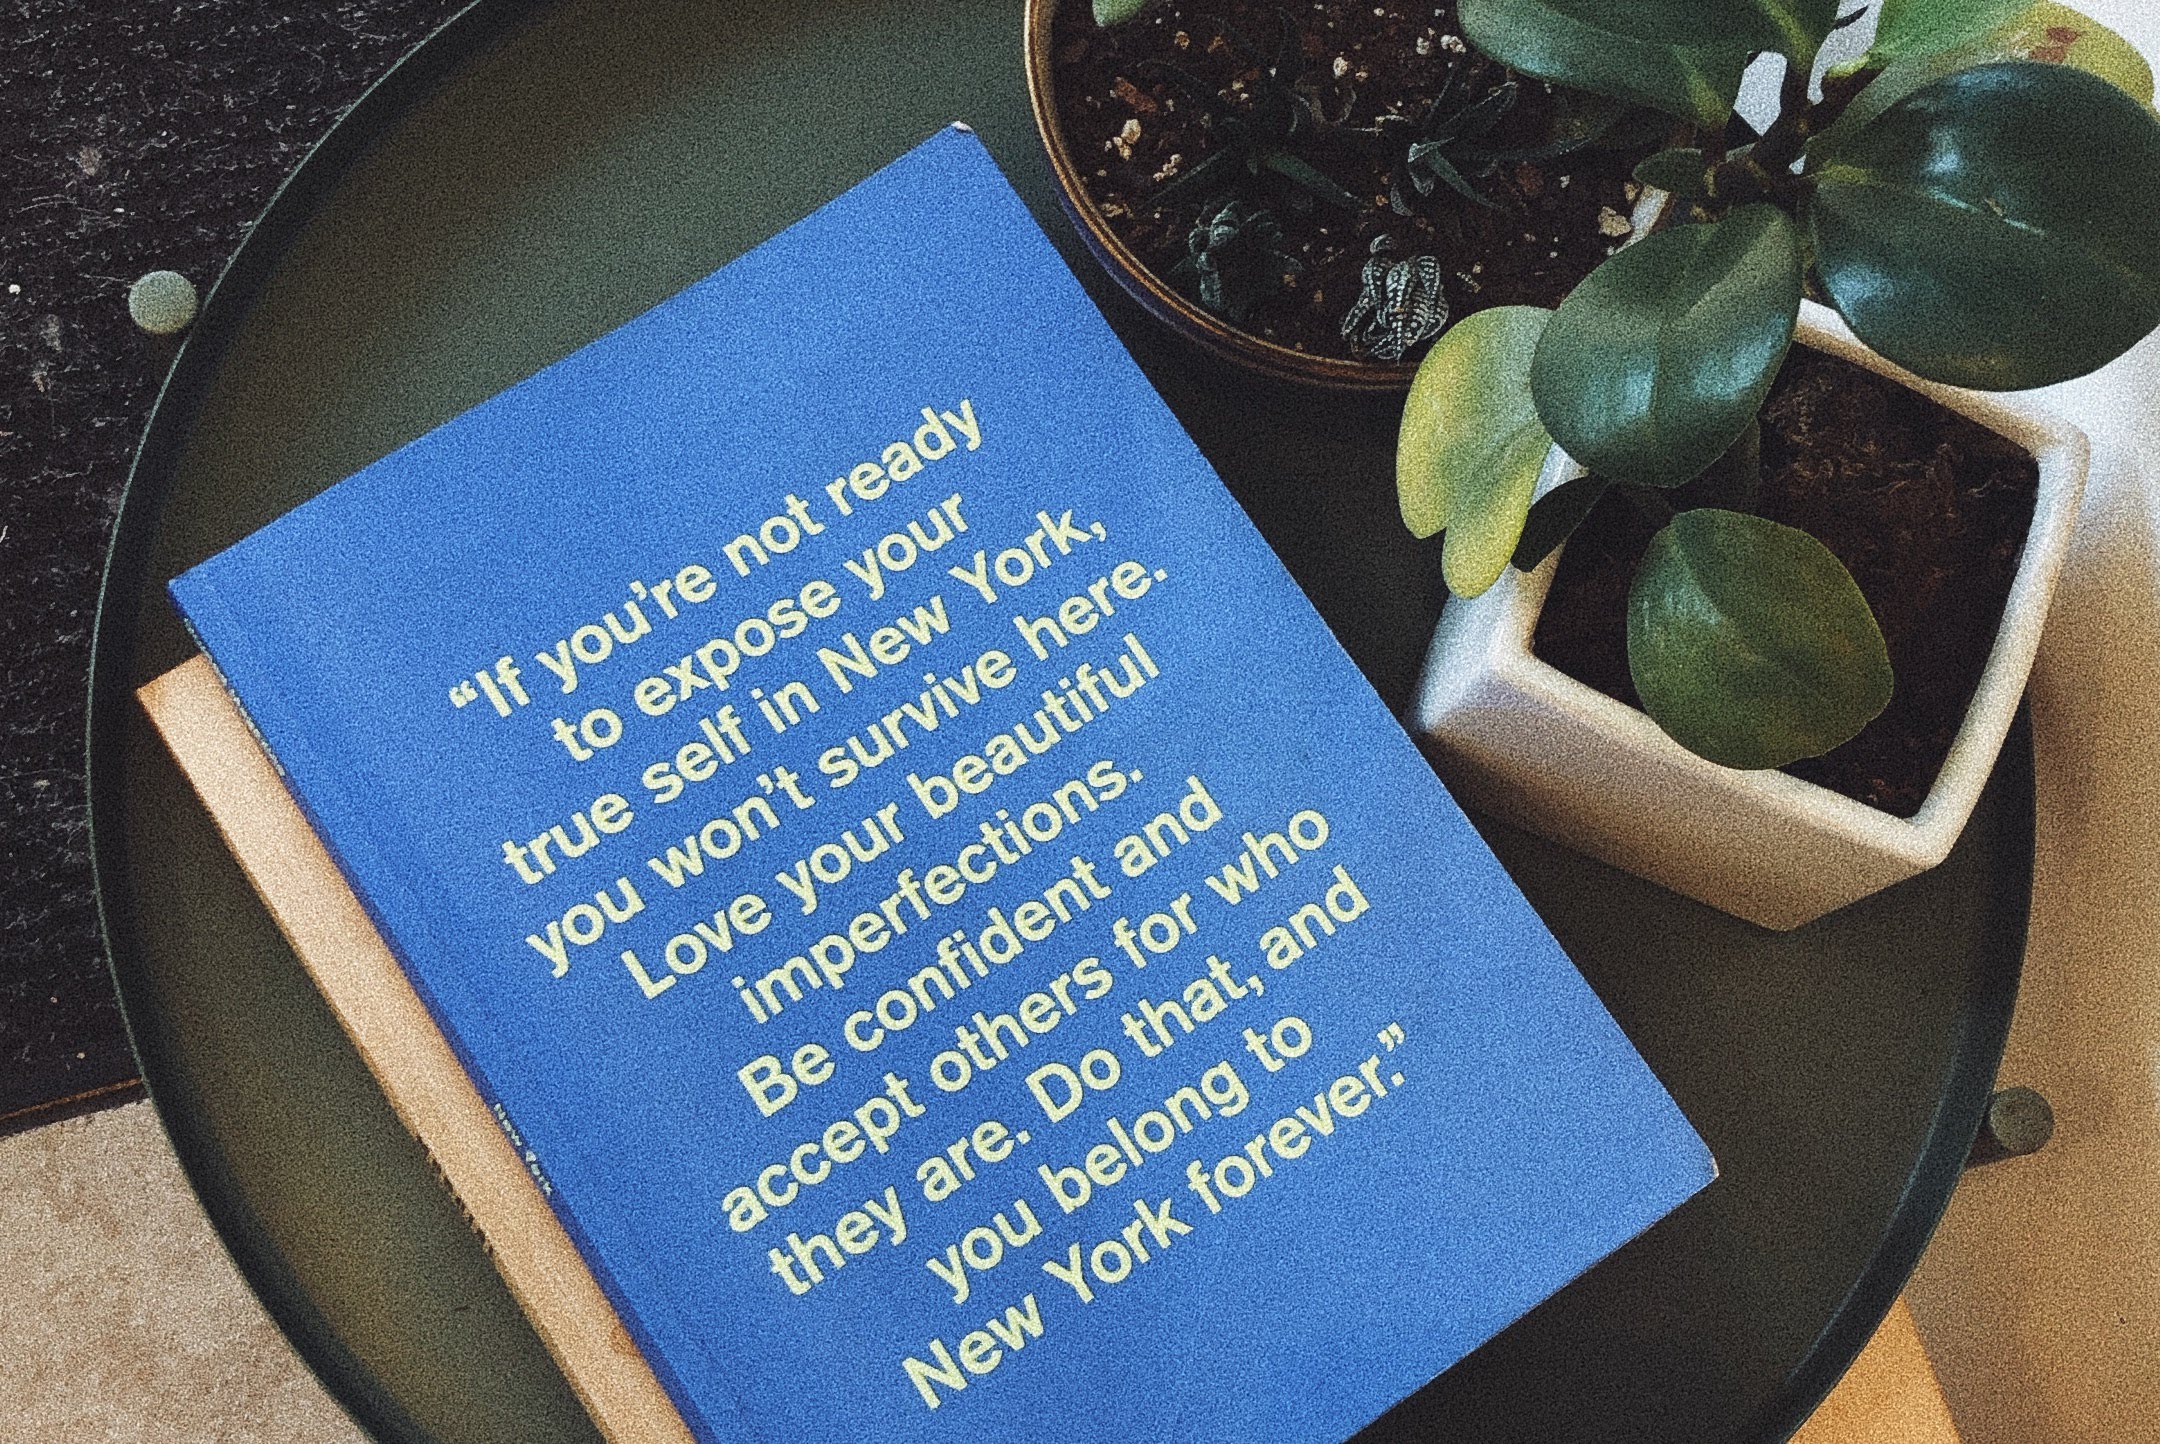 “If you’re not ready
to expose your
true self in New York,
you won’t survive here.
Love your beautiful
imperfections.
Be confident and
accept others for who
they are. Do that, and
you belong to
New York forever.”
New York